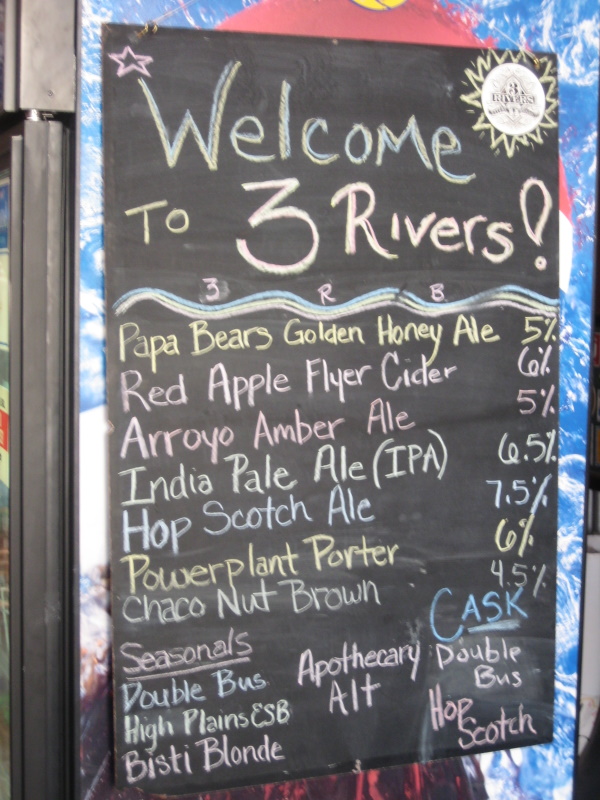 3
RIVERS
Welcome
To 3 Rivers!
3 R B
Papa Bears Golden Honey Ale 5%
Red Apple Flyer Cider 6%
Arroyo Amber Ale 5%
India Pale Ale (IPA) 6.5%
Hop Scotch Ale 7.5%
Powerplant Porter 6%
Chaco Nut Brown 4.5%
Seasonals
Double Bus
High Plains ESB
Bisti Blonde
Apothecary
Alt
CASK
Double
Bus
Hop
Scotch
3